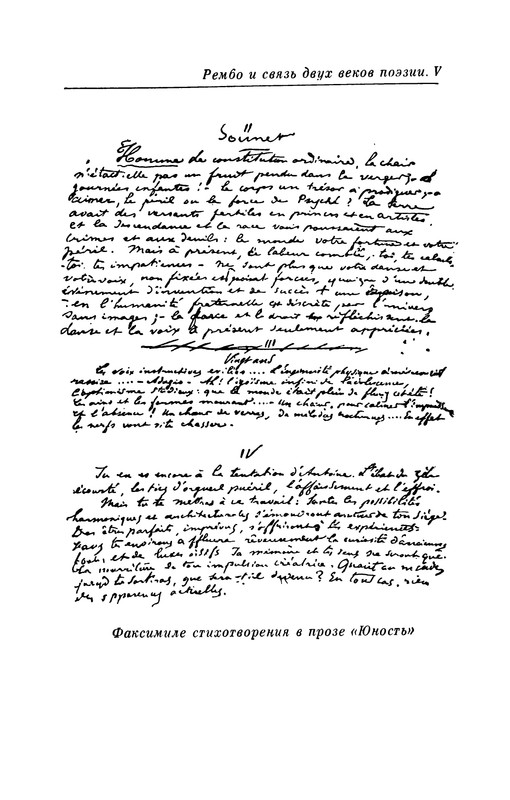 Рембо и связь двух веков поэзии. V
II
Sonnet
Homme de constitution ordinaire, la chair
n'était-elle pas un fruit pendu dans le verger, ô
journées enfantes ! le corps un trésor à prodiguer ; ô
aimer, le péril ou la force de Psyché ? La terre
avait des versants fertiles en princes et en artistes,
et la descendance et la race vous poussaient aux
crimes et aux deuils : le monde votre fortune et votre
péril. Mais à présent, ce labeur comblé, toi, tes calculs,
toi, tes impatiences - ne sont plus que votre danse et
votre voix, non fixées et point forcées, quoique d'un double
événement d'invention et de succès + une raison,
- en l'humanité fraternelle et discrète par l'univers
sans images ; - la force et le droit réfléchissent la
danse et la voix à présent seulement appréciées.
III
Vingt ans
Les voix instructives exilées.... l'ingénuité physique amèrement
rassise .... - Adagio - Ah ! l'égoïsme infini de l'adolescence,
l'optimisme studieux : que le monde était plein de fleurs cet été !
Les airs et les formes mourant.... - Un chœur, pour calmer l'impuissance
et l'absence ! Un chœur de verres, de mélodies nocturnes.... En effet
les nerfs vont vite chasser.
IV
Tu en es encore à la tentation d'Antoine. L'ébat du zèle
écourté, les tics d'orgueil puéril, l'affaissement et l'effroi.
Mais tu te mettras à ce travail : toutes les possibilités
harmoniques et architecturales s'émouvront autour de ton siège.
Des êtres parfaits, imprévus, s'offriront à tes expériences.
Dans tes environs affluera rêveusement la curiosité d'anciennes
foules et de luxes oisifs. Ta mémoire et tes sens ne seront que
la nourriture de ton impulsion créatrice. Quant au monde,
quand tu sortiras, que sera-t-il devenu ? En tout cas, rien
des apparences actuelles.
Факсимиле стихотворения в прозе «Юность»